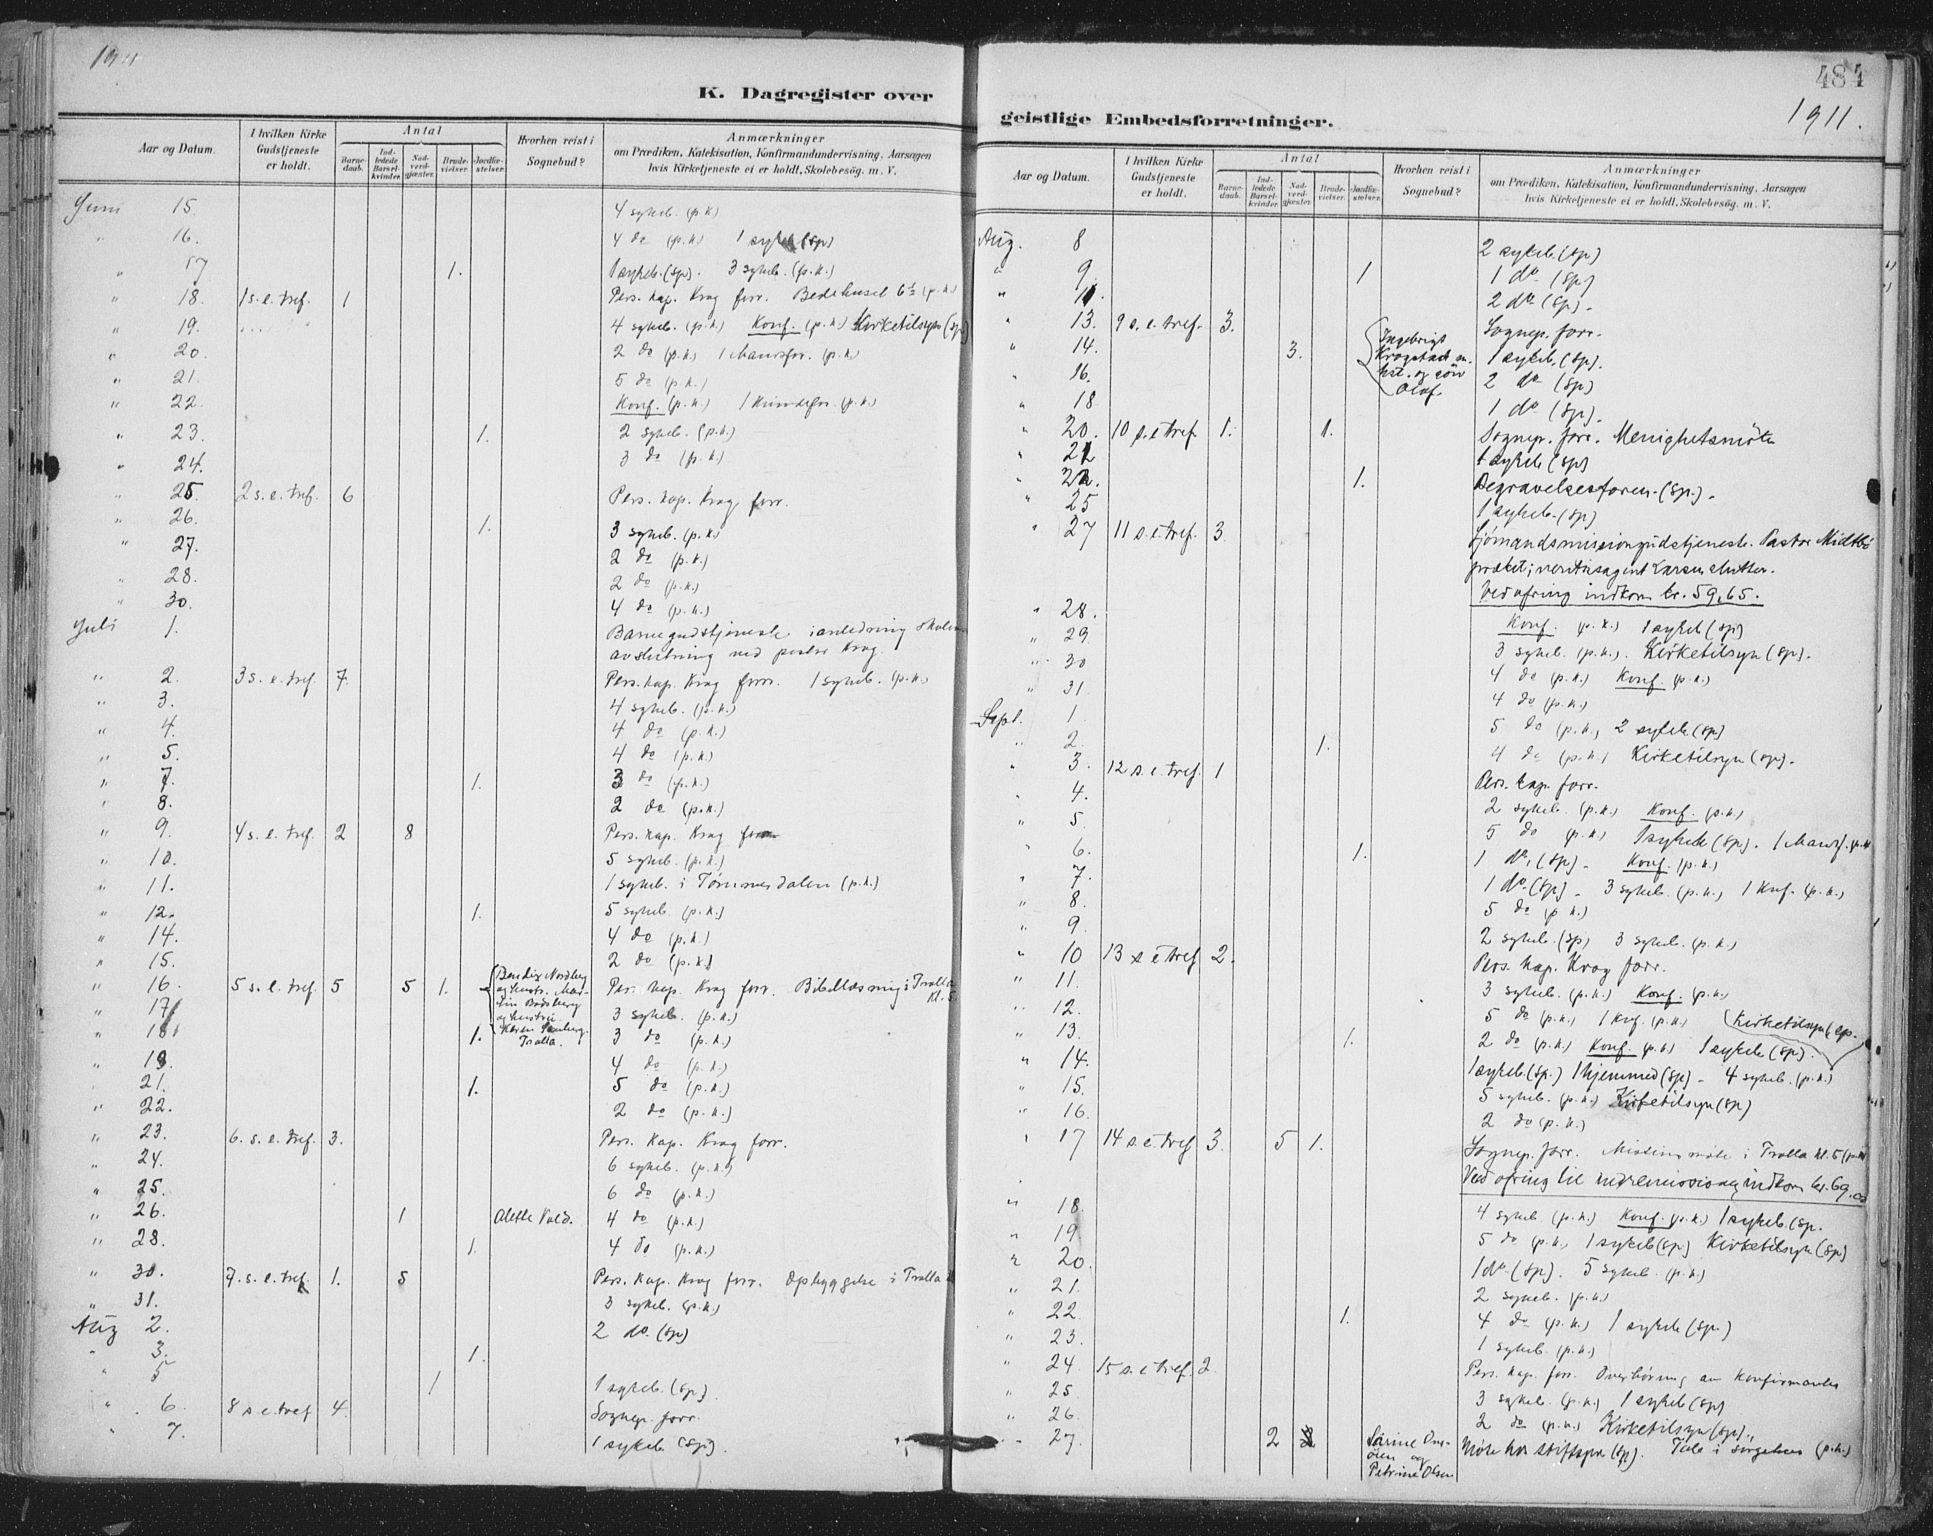 1911
K. Dagregister over
Aar og Datum.
I hvilken Kirke Gudstjeneste er holdt.
Antal
Barnedaab.
Indledede Barselkvinder.
Nadverdgjæster.
Brudevielser.
Jordfæstelser.
Hvorhen reist i Sognebud?
Anmærkninger
om Prædiken, Katekisation, Konfirmandundervisning, Aarsagen
hvis Kirketjeneste ei er holdt, Skolebesøg. m. V.
Juni 15. 4 sykeb. (p.k)
" 16. 4 do (p.k) 1 sykeb (sp)
" 17 1. 1 sykeb. (sp). 3 sykeb. (p.k.)
" 18. 1 s. e. tref. 1 Pers. kap. Krag forr. Bedehuset 6½ (p.k)
" 19. 4 sykeb. (p.k) Konf. (p.k) Kirketilsyn (sp)
" 20. 2 do (p.k) 1 Mandsfor. (p.k)
" 21. 5 do (p.k.)
" 22. Konf. (p.k) 1 Kvindefor. (p.k)
" 23. 1. 2 sykeb. (p.k.)
" 24. 3 do (p.k)
" 25. 2 s. e. tref. 6 Pers. kap. Krag forr.
" 26. 1. 3 sykeb. (p.k)
" 27. 2 do (p.k.)
" 28. 2 do (p.k.)
" 30. 4 do (p.k.)
Juli 1. Barnegudstjeneste i anledning skolens
avslutning ved pastor Krag.
" 2. 3 s. e. tref. 7. Pers. kap. Krag forr. 1 sykeb. (p.k.)
" 3. 4 sykeb. (p.k.)
" 4. 4 do (p.k.)
" 5. 4 do (p.k.)
" 7. 1. 3 do (p.k.)
" 8. 2 do (p.k.)
" 9. 4 s. e. tref. 2 8 Pers. kap. Krag forr
" 10. 5 sykeb. (p.k.)
" 11. 1 sykeb. i Tømmesdalen (p.k.)
" 12. 1. 5 sykeb. (p.k.)
" 14. 4 do (p.k.)
" 15. 2 do (p.k.)
" 16. 5 s. e. tref. 5 5 1. Bendix Nordberg og hustr. Martin Bodsberg og hustru. Karen Tralla. Pers. kap. Krag forr. Bibellæsning i Tralla Kl. 5.
" 17 3 sykeb. (p.k.)
" 18 1. 3 do (p.k.)
" 19. 4 do (p.k.)
" 21. 1. 5 do (p.k.)
" 22. 2 do (p.k.)
" 23. 6. s. e. tref. 3. Pers. kap. Krag forr.
" 24. 6 sykeb. (p.k.)
" 25. 6 do (p.k.)
" 26. 1 Alette Vold. 4 do (p.k.)
" 28. 1. 4 do (p.k.)
" 30. 7. s. e. tref. 1. 5 Pers. kap. Krag forr. Opbyggelse i Tralla
" 31. 3 sykeb. (p.k.)
Aug 2. 2 do. (sp)
" 3. 1.
" 5 1 1 sykeb. (sp).
" 6. 8 s e. tref 4. Sognep. forr.
" 7. 1 sykeb (sp).
484
geistlige Embedsforretninger.
1911.
Aar og Datum.
I hvilken Kirke Gudstjeneste er holdt.
Antal
Barnedaab.
Indledede Barselkvinder.
Nadverdgjæster.
Brudevielser.
Jordfæstelser.
Hvorhen reist i Sognebud?
Anmærkninger
om Prædiken, Katekisation, Konfirmandundervisning, Aarsagen
hvis Kirketjeneste ei er holdt, Skolebesøg. m. V.
Aug. 8 2 sykeb. (sp)
" 9. 1 1 do. (sp)
" 11. 2 do (sp).
" 13. 9 s. e. tref. 3. Sognep. forr.
" 14. 3. Ingebrigt Krogstad m. hst. og søn Olaf. 1 sykeb. (sp).
" 16. 2 do (sp)
" 18 1 do (sp).
" 20. 10 s. e tref. 1. 1. Sognep. forr. Menighetsmøte
" 21 1 sykeb (sp)
" 22. 1. Begravelsesforen. (sp).
" 25 1 sykeb. (sp)
" 27 11 s. e. tref. 3. Sjømandsmissiongudstjeneste. Pastor Midtbø
præket; Larsen
Ved ofring indkom kr. 59,65.
" 28. Konf. (p.k.) 1 sykeb (sp)
" 29 3 sykeb. (p.k.). Kirketilsyn (sp).
" 30 4 do (p.k.) Konf. (p.k.)
" 31. 4 do (p.k.)
Sept. 1. 5 do (p.k., 2 sykeb (sp)
" 2. 1. 4 do (p.k.) Kirketilsyn (sp).
" 3. 12 s. e. tref. 1 Pers. kap. forr.
" 4. 2 sykeb. (p.k.) Konf. (p.k)
" 5. 5 do (p.k.) 1 sykeb (sp). 1 Mandsf. p.k
" 6. 1. 1 do. (sp). Konf. (p.k.)
" 7. 1 do (sp). 3 sykeb. (p.k.) 1 Knf. (p.k.)
" 8. 5 do (p k.)
" 9. 2 sykeb. (sp) 3 sykeb. (p.k.)
" 10 13 s e tref 2. Pers. kap. Krag forr.
" 11. 3 sykeb. (p.k.) Konf. (p.k.)
" 12. 5 do (p.k.) 1 Knf. (p.k.) (Kirketilsyn (sp.
" 13. 1. 2 do (p.k.) Konf. (p.k) 1 sykeb (sp).
" 14. 1 sykeb. (sp.) 1 hjemmed (sp). 4 sykeb. (p.k.)
" 15. 5 sykeb. (p.k.) Kirketilsyn (sp)
" 16. 2 do (p.k.)
" 17 14 s. e tref 3. 5 1. Sognep. forr. Missionsmøte i Tralla kl. 5 (p.k)
Ved ofring til indremissionen indkom kr. 69,00
" 18. 4 sykeb. (p.k.) Konf. (p.k.) 1 sykeb. (sp.
" 19 5 do (p.k, 1 sykeb (sp) Kirketilsyn (sp)
" 20. 1 do. (sp). 5 sykeb. (p.k.)
" 21. 2 sykeb. (p.k.)
" 22 1. 4 do (p.k.) 1 sykeb (sp.)
" 23. 1 sykeb. (p.k.)
" 24 15 s. e tref. 2. Pers. kap. forr. Overhøring av konfirmanter
" 25. 3 sykeb. (p.k.) 1 sykeb (sp)
" 26. 2 do (p.k.) Kirketilsyn (sp).
" 27. 2 Sarine og Petrine Olsen Møte hos stiftsprv. (sp). Tale i sørgehus (p.k.)